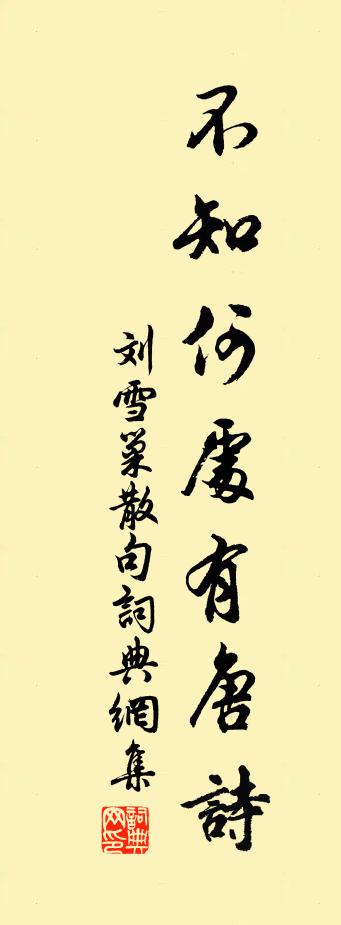 不知何處有唐詩
刘雪巢散句詞典網集
詞典网印